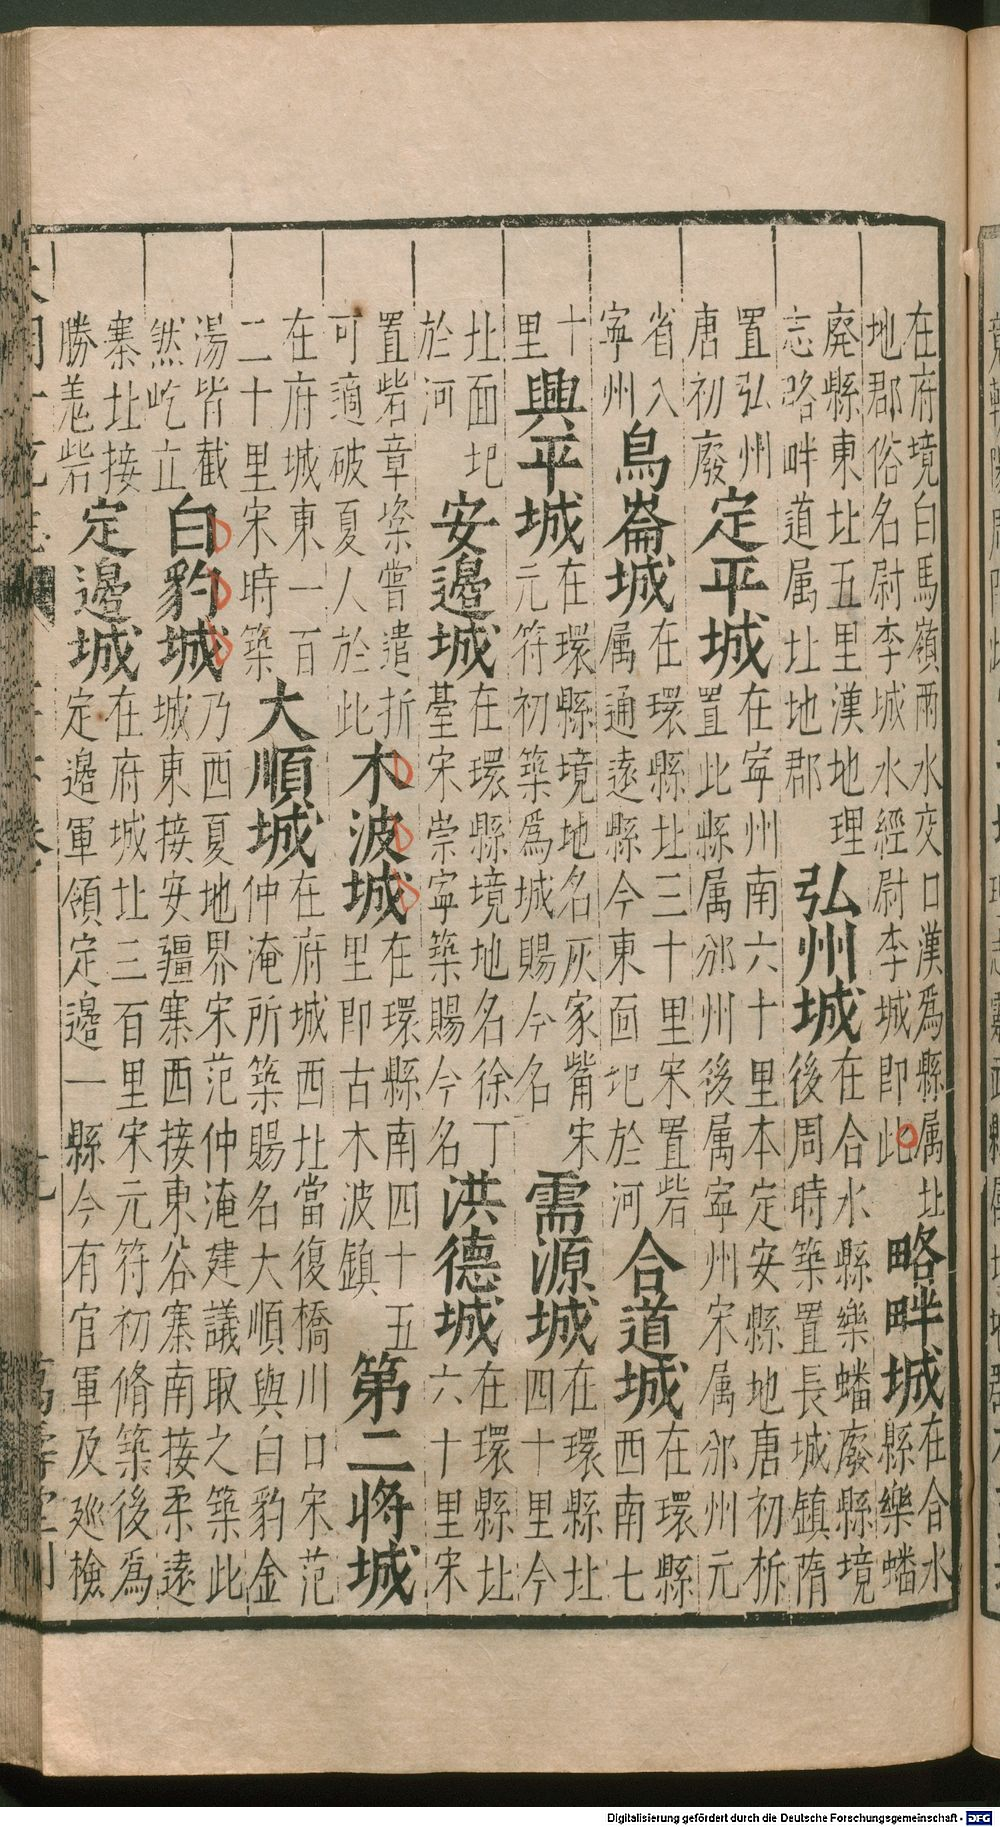 在府境白馬嶺兩水交口漢爲縣属北
地郡俗名尉李城水經尉李城即此
略畔城
在合水
縣樂蟠
廢縣東北五里漢地理
志略畔道属北地郡
弘州城
在合水縣樂蟠廢縣境
後周時築置長城鎮隋
置弘州
唐初廢
定平城
在寧州南六十里本定安縣地唐初析
置此縣属邠州後属寧州宋属邠州元
省入
寧州
鳥崙城
在環縣北三十里宋置砦
属通遠縣今東面圯於河
合道城
在環縣
西南七
十
里
興平城
在環縣境地名灰家觜宋
元符初築爲城賜今名
需源城
在環縣北
四十里今
北面圯
於河
安邊城
在環縣境地名徐丁
臺宋崇寧築賜今名
洪德城
在環縣北
六十里宋
置砦章楶嘗遣折
可適破夏人於此
木波城
在環縣南四十五
里即古木波鎮
第二將城
在府城東一百
二十里宋時築
大順城
在府城西北當復橋川口宋范
仲淹所築賜名大順與白豹金
湯皆截
然屹立
白豹城
乃西夏地界宋范仲淹建議取之築此
城東接安疆寨西接東谷寨南接柔遠
寨北接
勝羗砦
定邊城
在府城北三百里宋元符初脩築後爲
定邊軍領定邊一縣今有官軍及廵檢
Digitalisierung gefördert durch die Deutsche Forschungsgemeinschaft - DFG